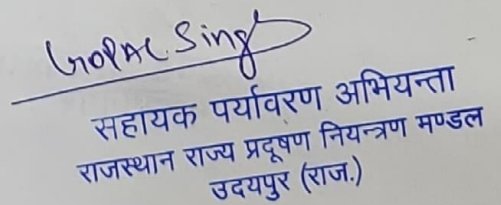 GOPAL Singh
सहायक पर्यावरण अभियन्ता
राजस्थान राज्य प्रदूषण नियन्त्रण मण्डल
उदयपुर (राज.)